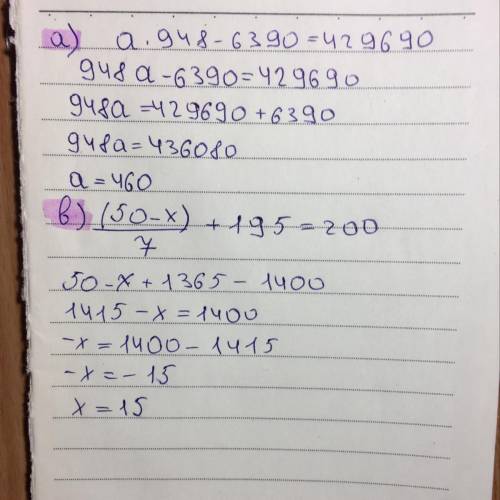 а) a · 948 - 6390 = 429690
948a - 6390 = 429690
948a = 429690 + 6390
948a = 436080
a = 460
в) (50 - x)/7 + 195 = 200
50 - x + 1365 - 1400
1415 - x = 1400
-x = 1400 - 1415
-x = -15
x = 15